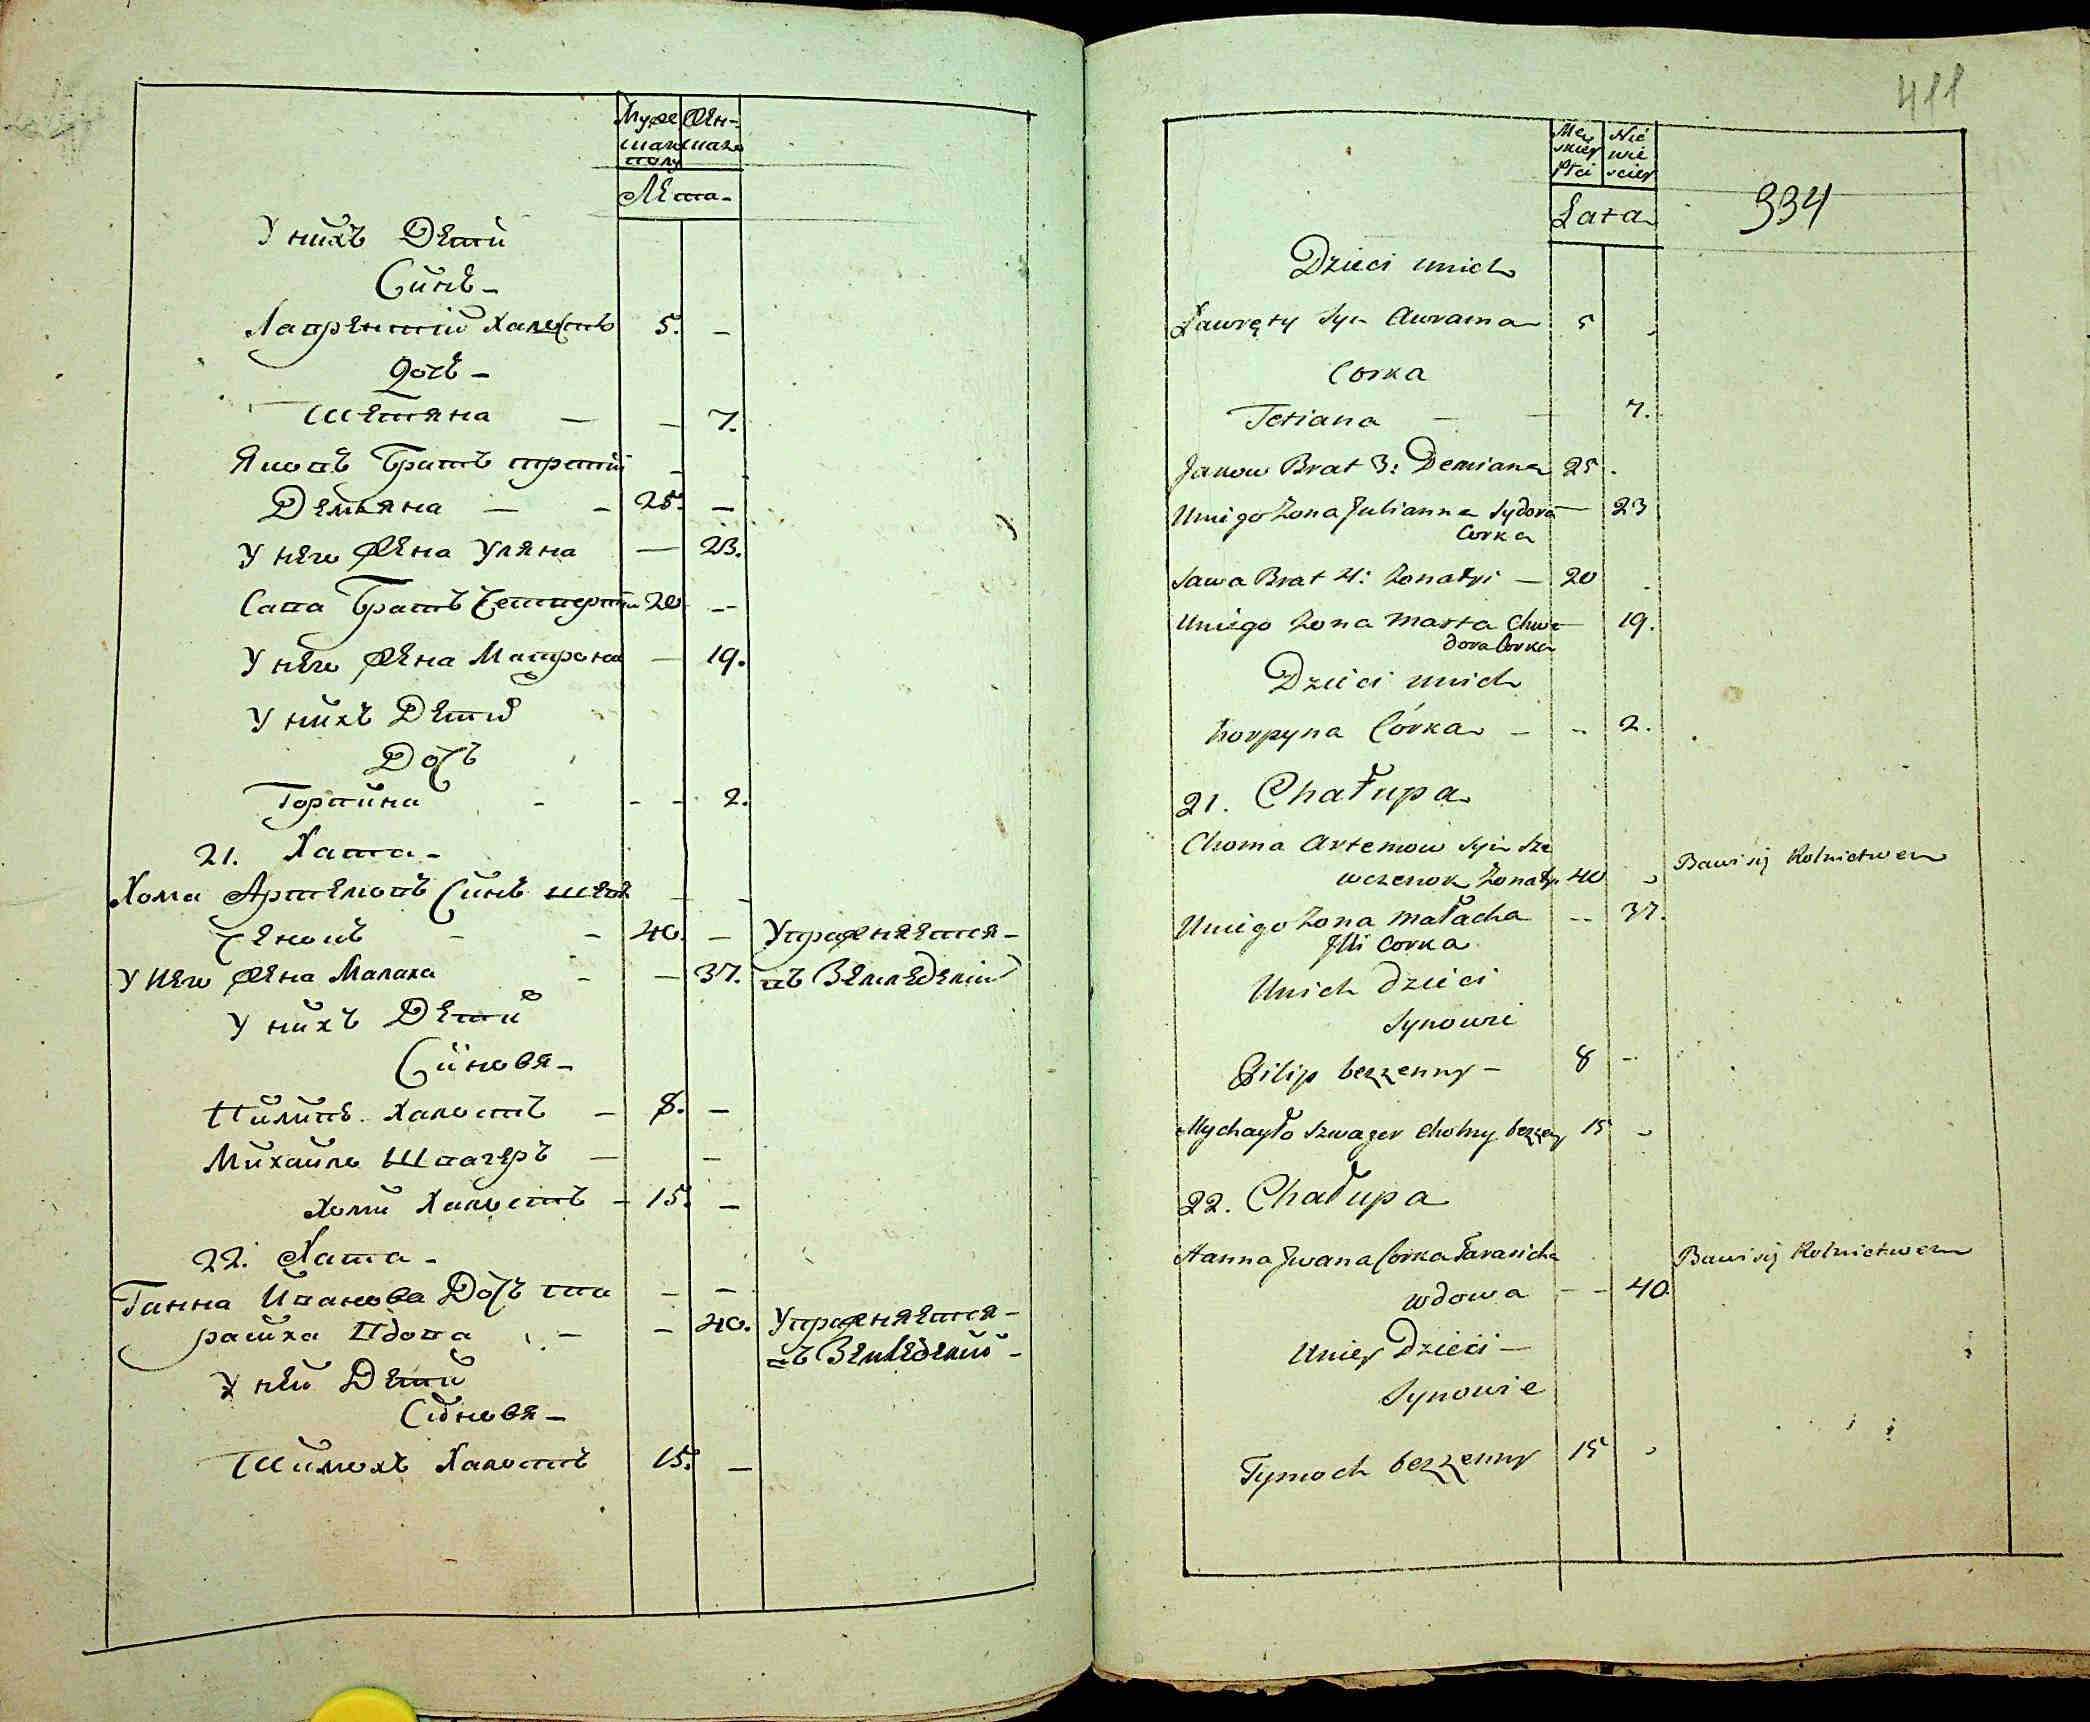 Муже Жен-
скаго скаго
полу
Лета-
У нихъ Дети
Синъ-
Лаврентий Халостъ 5. –
Дочъ –
Тетяна – – 7.
Яковъ Братъ третий –
Демьяна – – 25. –
У него Жена Уляна – 23.
Сава Братъ Четверти 20 --
У него Жена Матрона – 19.
У нихъ Детий
Дочъ
Горпина - - - 2.
21. Хата-
Хома Артемовъ Синъ Шев – –
ченокъ - - 40. – Упражняется-
У него Жена Малаха - – 37. въ Земледелии
У нихъ Дети
Синовя-
Пилипъ Халостъ – 8. –
Михаило Швагеръ – –
Хоми Халостъ – 15. –
22. Хата-
Ганна Иванова Дочъ Та – –
расиха Вдова – – 40. Упражняется-
въ Земледелии -
У ней Дети
Синовя-
Тимохъ Халостъ 15. –
411
Mę Nie
skiey wie
płci sciey
Lata
334
Dzieci unich
Ławręty Syn Awrama 5
Corka
Tetiana — — 7.
Jakow Brat 3: Demiana 25.
Uniego Zona Julianna Sydora — 23
Corka
Sawa Brat 4: Zonaty — 20
Uniego Zona Marta Chwe — 19.
dora Corka
Dzieci unich
horpyna Córka – – 2.
21. Chałupa
Choma Artemow Syn Sze
wczenok Zonaty 40 Bawi się Rolnictwem
Uniego Zona Małacha -- 37.
Illi Corka
Unich dzieci
Synowie
Filip bezzenny – 8 –
Mychayło Szwager Chomy bezzen 15
22. Chałupa
Hanna Jwana Corka Tarasicha Bawi się Rolnictwem
wdowa – – 40
Uniey Dzieci –
Synowie
Tymoch bezzenny 15